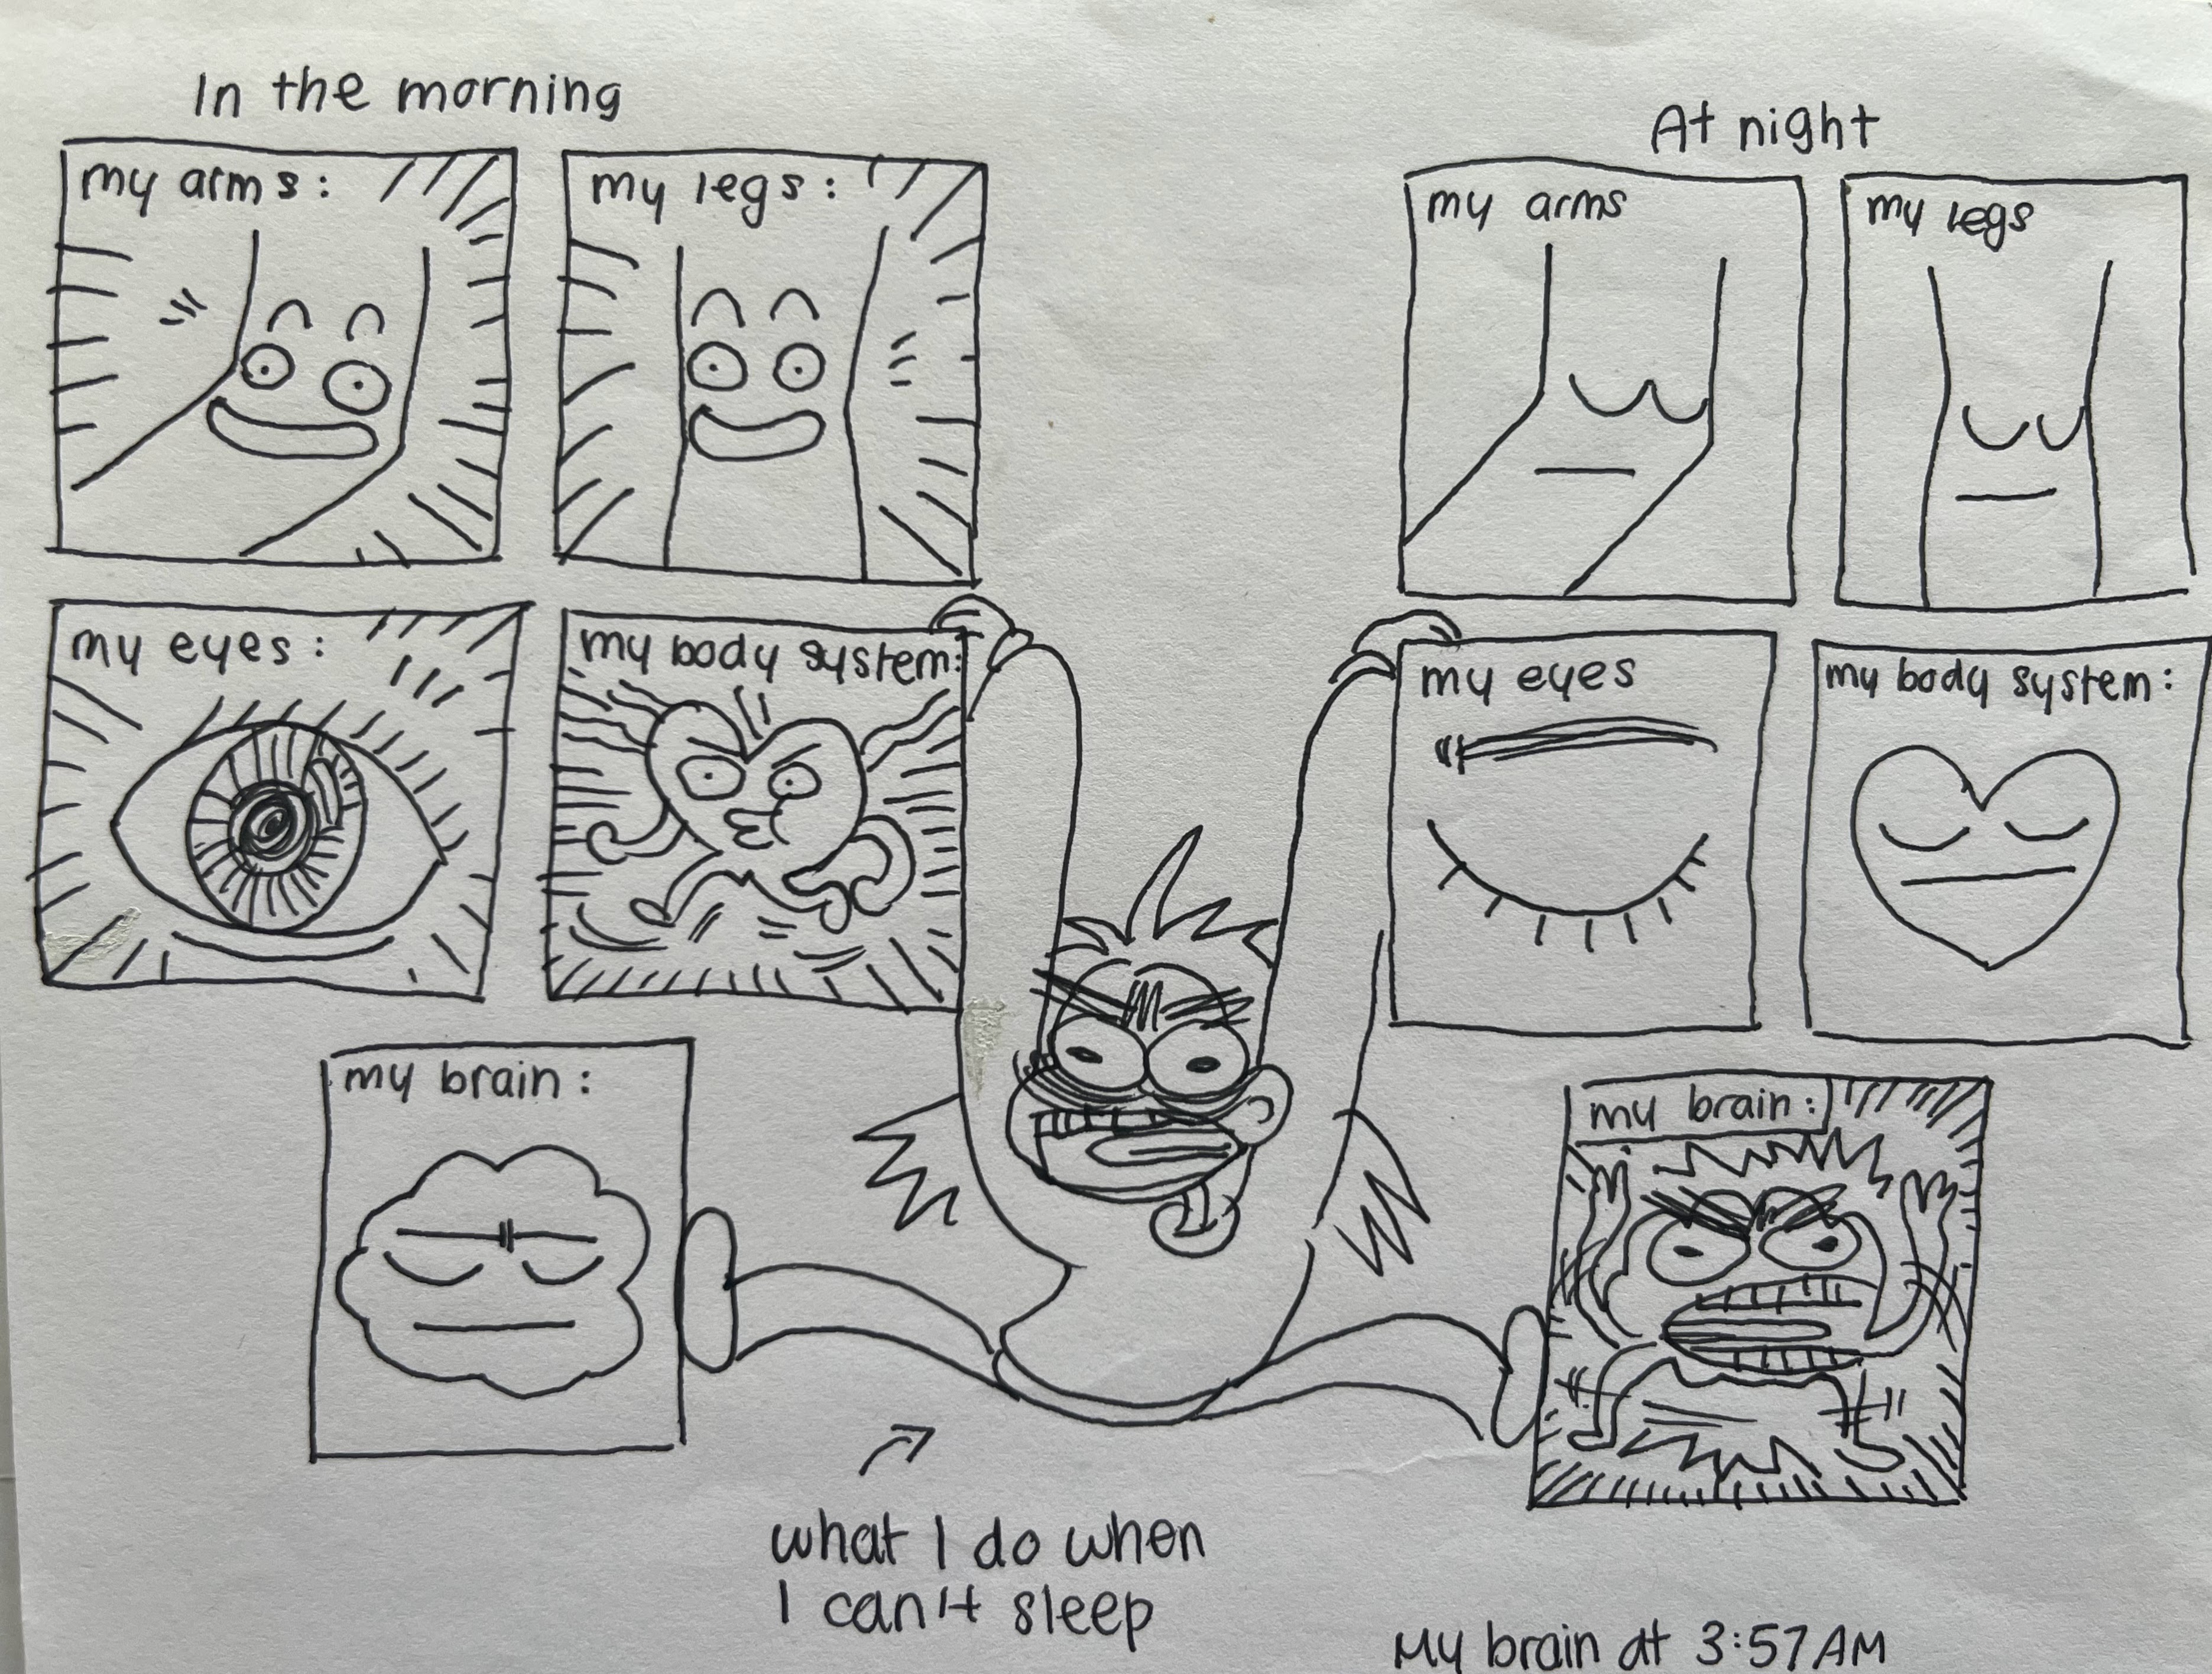 In the morning
my arms:
my legs:
my eyes:
my body system:
my brain:
At night
my arms
my legs
my eyes
my body system:
my brain:
what I do when
I can't sleep
My brain at 3:57AM